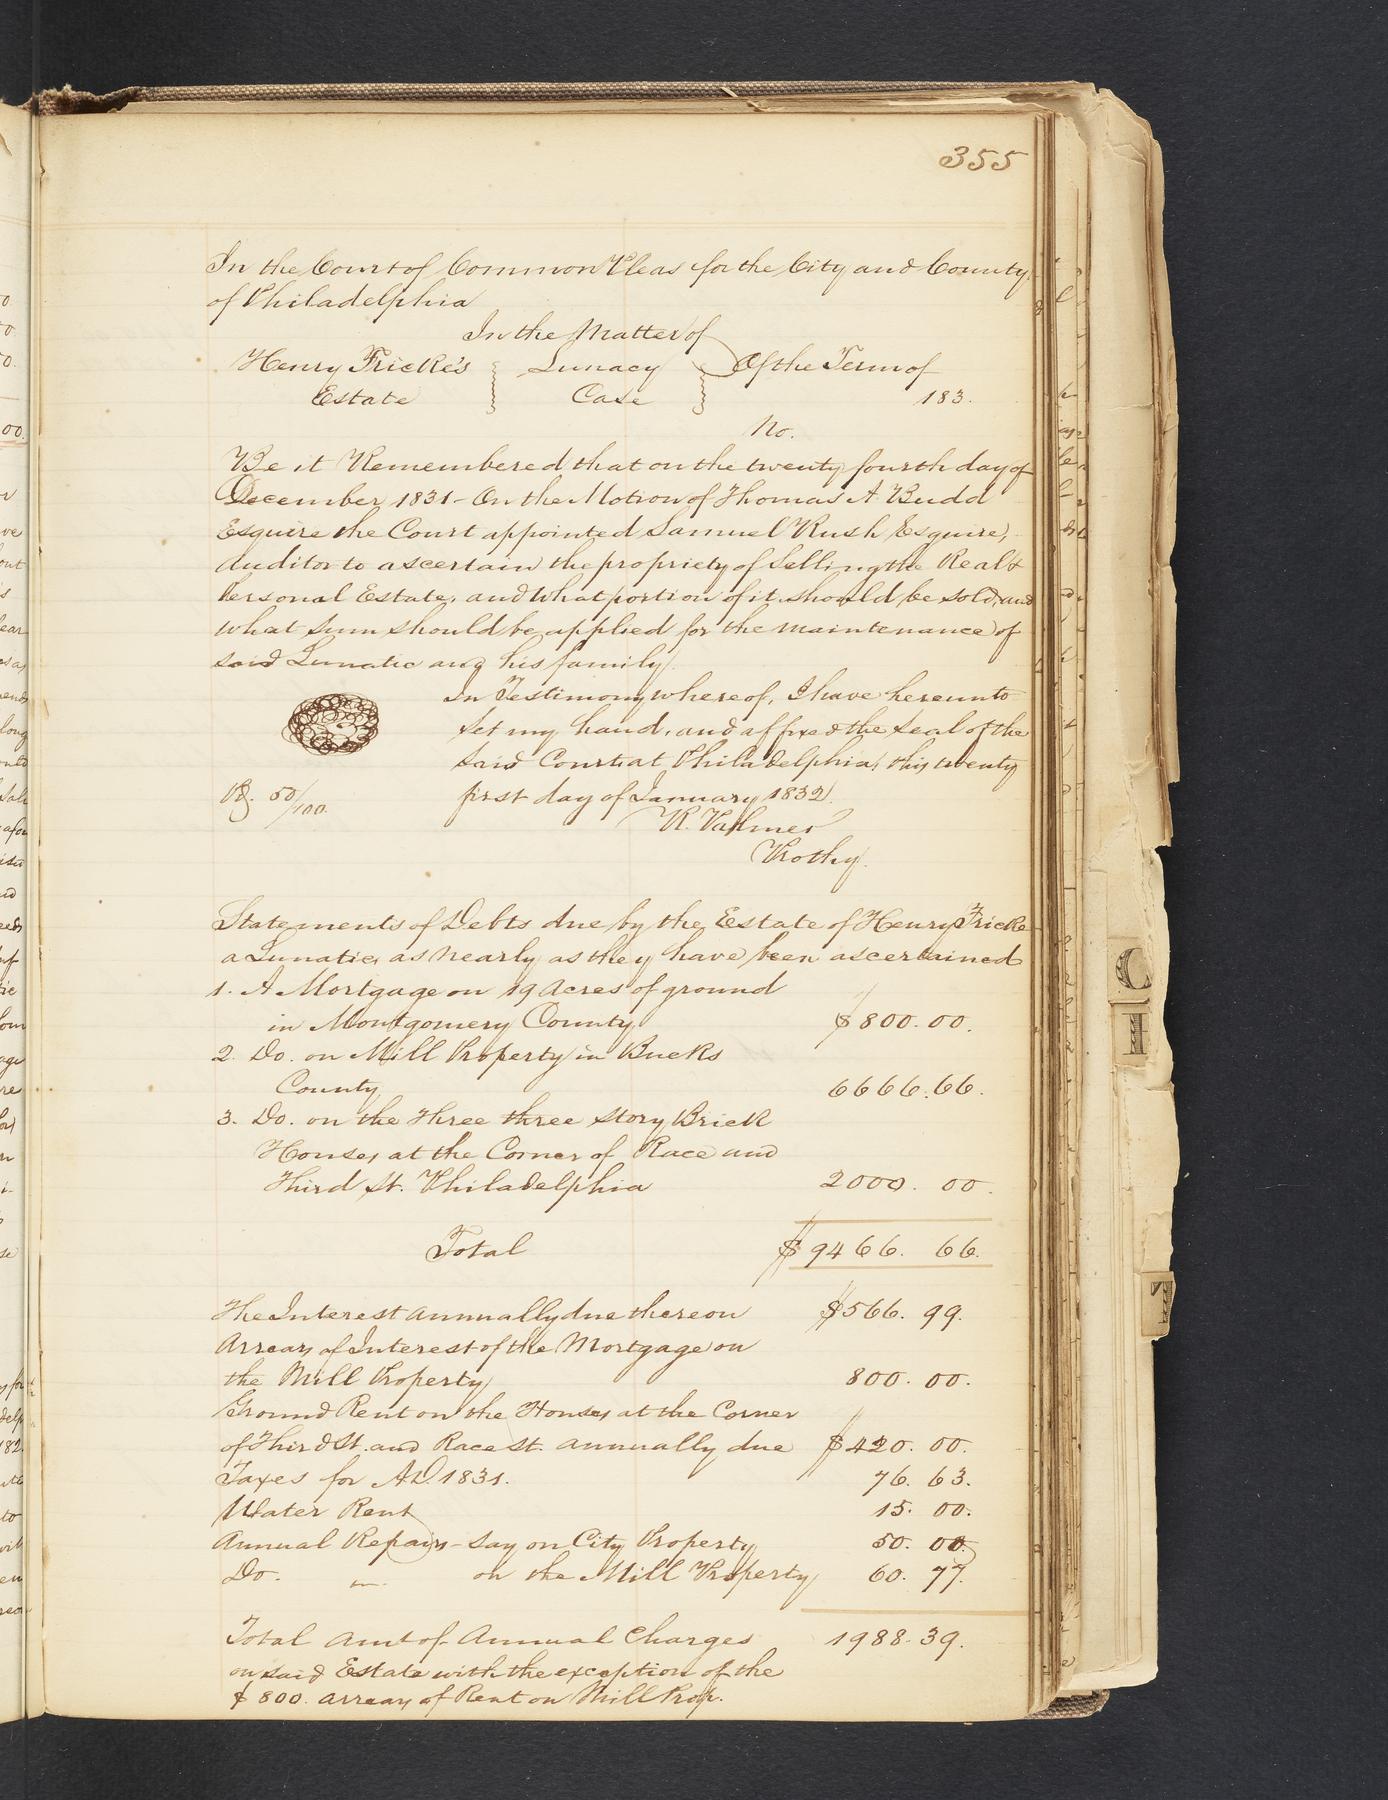 355
In the Court of Common Pleas for the City and County
of Philadelphia
In the Matter of
Henry Fricke's Lunacy Of the Term of
Estate Case 183.
No.
Be it Remembered that on the twenty fourth day of
December 1831 - On the Motion of Thomas A. Budd
Esquire the Court appointed Samuel Rush Esquire,
Auditor to ascertain the propriety of Selling the Real &
Personal Estate, and what portion of it should be sold, and
what sum should be applied for the maintenance of
said Lunatic and his family.
In Testimony whereof, I have hereunto
set my hand, and affixed the seal of the
said Court at Philadelphia, this twenty
Pd. 50/100 first day of January 1832.
R. Palmer
Prothy.
Statements of Debts due by the Estate of Henry Fricke
a Lunatic, as nearly as they have been ascertained
1. A Mortgage on 19 Acres of ground
in Montgomery County $800.00.
2. Do. on Mill Property in Bucks
County 6666.66.
3. Do. on the Three three story Brick
Houses at the Corner of Race and
Third St. Philadelphia 2000. 00.
Total $9466. 66.
The Interest annually due thereon $566. 99.
Arrears of Interest of the Mortgage on
the Mill Property 800. 00.
Ground Rent on the Houses at the Corner
of Third St. and Race St. annually due $420. 00.
Taxes for A.D. 1831. 76. 63.
Water Rent 15. 00.
Annual Repairs - say on City Property 50. 00.
Do. " on the Mill Property 60. 77.
Total amt of Annual Charges 1988. 39.
on said Estate with the exception of the
$800. arrears of Rent on Mill Prop.
C
I
T